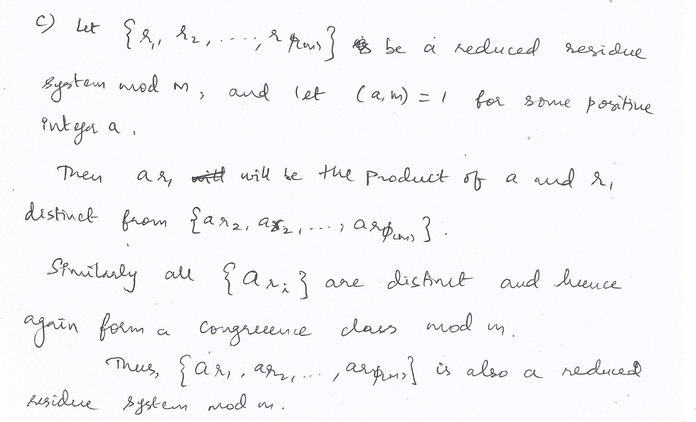 c) Let {r₁, r₂, ...., r φ(m)} be a reduced residue
system mod m, and let (a,m) = 1 for some positive
integer a.
Then ar₁ will be the product of a and r₁
distinct from {ar₂, ar₂, ..., arφ(m)}.
Similarly all {arᵢ} are distinct and hence
again form a congruence class mod m.
Thus, {ar₁, ar₂, ..., arφ(m)} is also a reduced
residue system mod m.